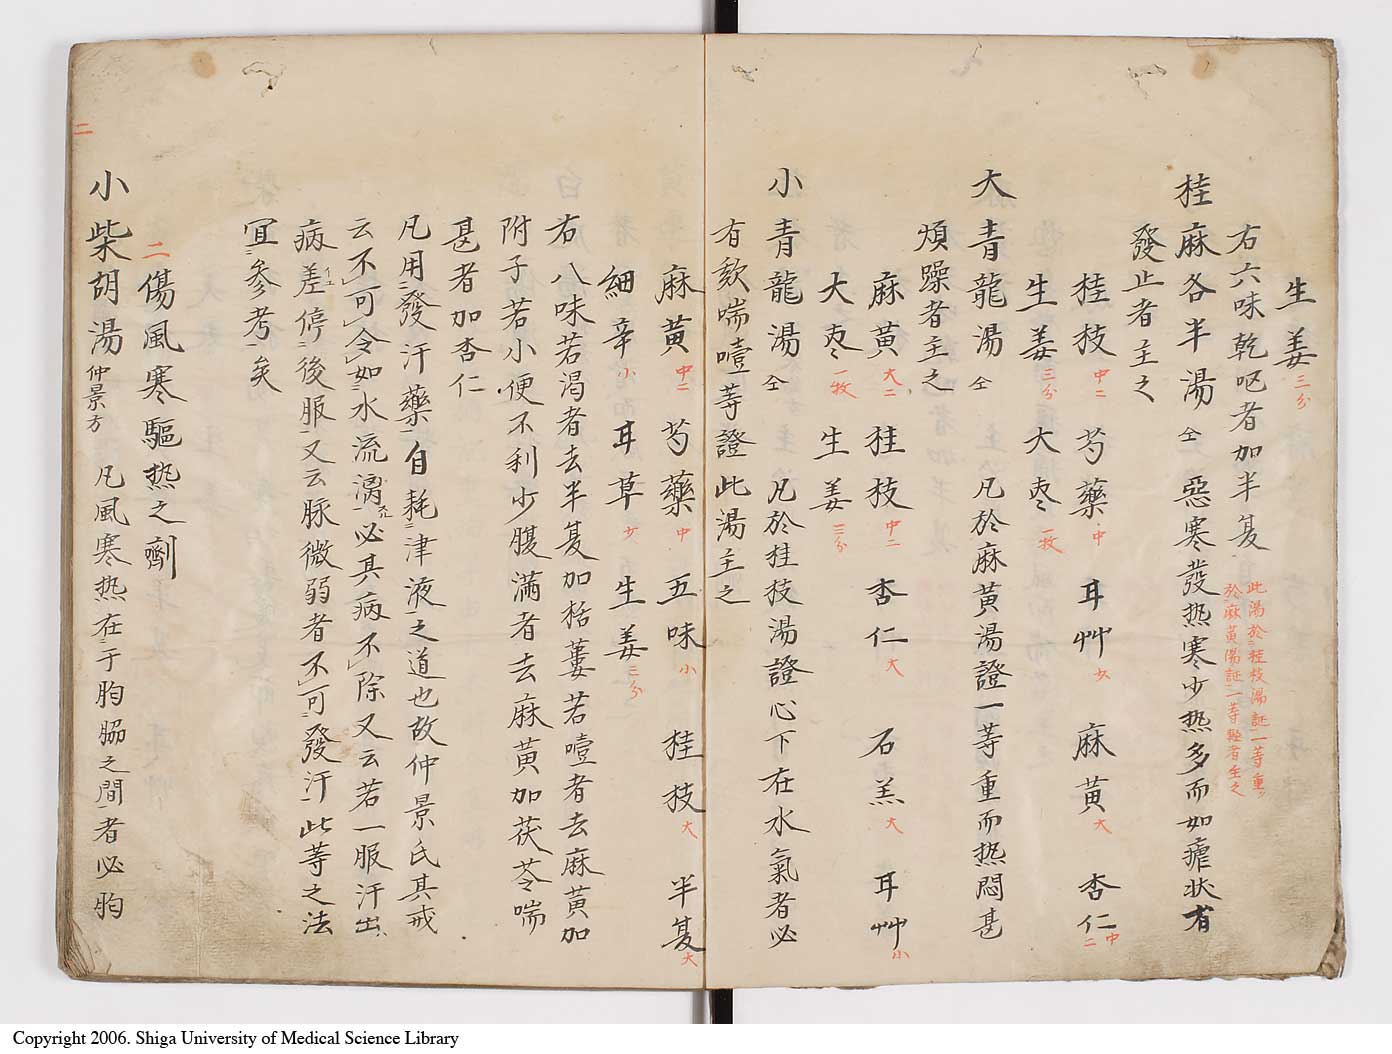 生姜 三分
右六味乾呕者加半夏 此湯於桂枝湯証一等重ク
於麻黄湯証一等軽者主之
桂麻各半湯 仝 惡寒發熱寒少熱多而如瘧状有
發止者主之
桂枝 中二 芍藥 中 耳艸 少 麻黄 大 杏仁 中二
生姜 三分 大枣 一枚
大青龍湯 仝 凡於麻黄湯證一等重而热悶甚
煩躁者主之
麻黄 大二 桂枝 中二 杏仁 大 石羔 大 耳艸 小
大枣 一枚 生姜 三分
小青龍湯 仝 凡於桂枝湯證心下在水氣者必
有欬喘噎等證此湯主之
麻黄 中二 芍藥 中 五味 小 桂枝 大 半夏 大
細辛 小 耳草 少 生姜 三分
右八味若渴者去半夏加栝蔞若噎者去麻黄加
附子若小便不利少腹满者去麻黄加茯苓喘
甚者加杏仁
凡用發汗藥自耗津液之道也故仲景氏其戒
云不可令如水流漓必其病不除又云若一服汗出
病差停後服又云脉微弱者不可發汗此等之法
宜参考矣
二 傷風寒驅热之劑
二
小柴胡湯 仲景方 凡風寒热在于胸脇之間者必胸
Copyright 2006. Shiga University of Medical Science Library